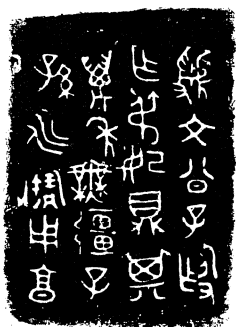 虢文公子𣪘
乍叔妃鼎其
萬年無疆子
孫永寶用享